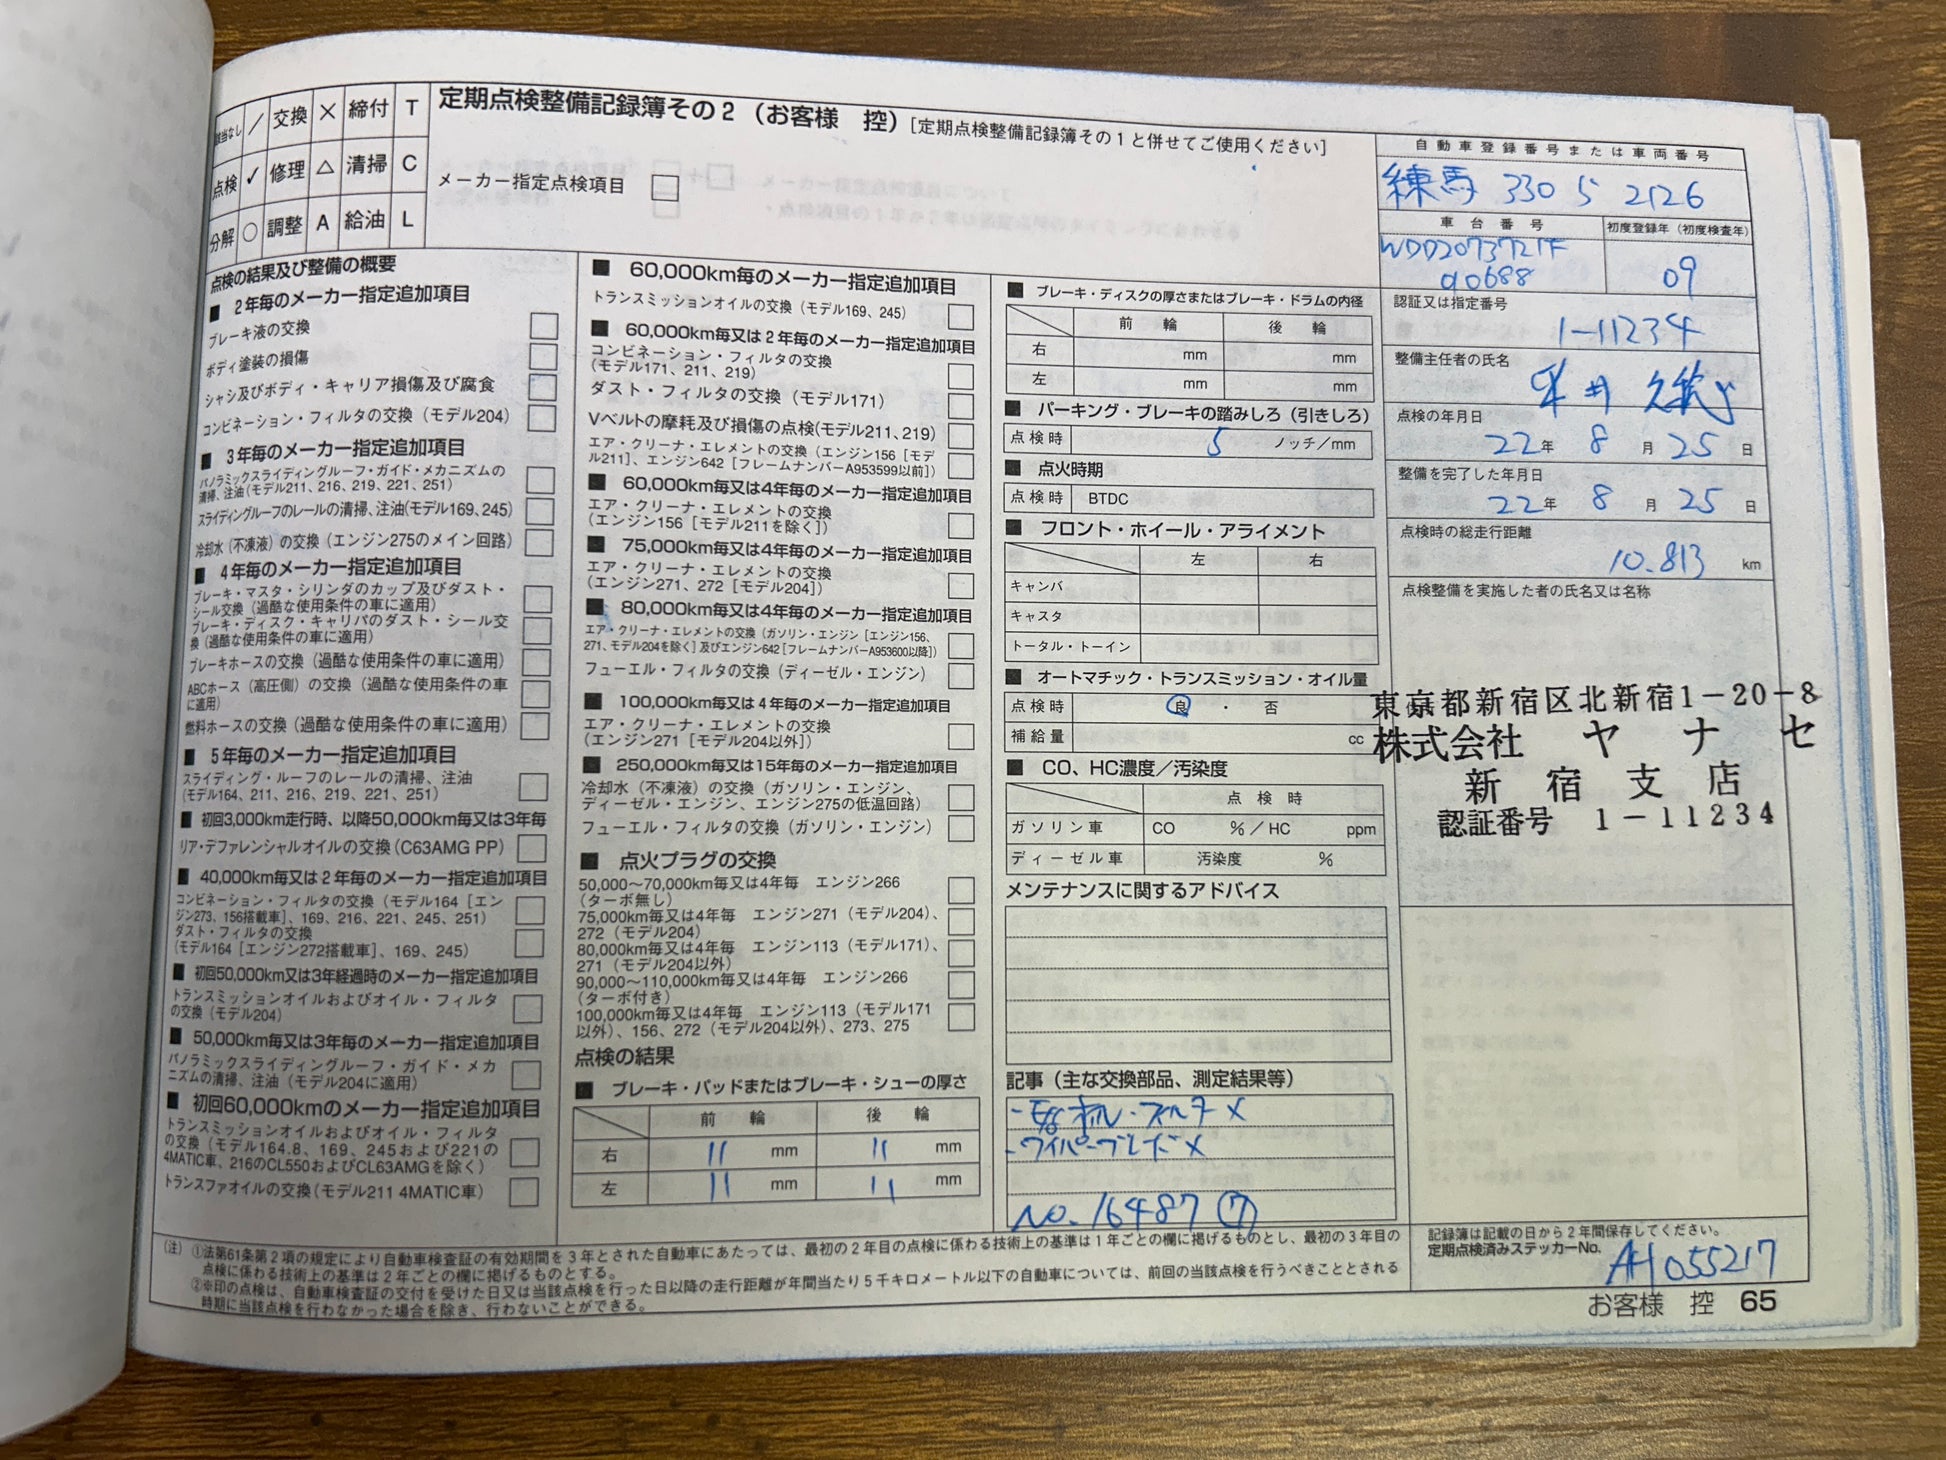 該当なし ／ 交換 × 締付 T
点検 ✓ 修理 △ 清掃 C
分解 ○ 調整 A 給油 L
定期点検整備記録簿その2（お客様 控）[定期点検整備記録簿その1と併せてご使用ください]
メーカー指定点検項目 □
点検の結果及び整備の概要
■ 2年毎のメーカー指定追加項目
ブレーキ液の交換
ボディ塗装の損傷
シャシ及びボディ・キャリア損傷及び腐食
コンビネーション・フィルタの交換（モデル204）
■ 3年毎のメーカー指定追加項目
パノラミックスライディングルーフ・ガイド・メカニズムの
清掃、注油（モデル211、216、219、221、251）
スライディングルーフのレールの清掃、注油（モデル169、245）
冷却水（不凍液）の交換（エンジン275のメイン回路）
■ 4年毎のメーカー指定追加項目
ブレーキ・マスタ・シリンダのカップ及びダスト・
シール交換（過酷な使用条件の車に適用）
ブレーキ・ディスク・キャリパのダスト・シール交
換（過酷な使用条件の車に適用）
ブレーキホースの交換（過酷な使用条件の車に適用）
ABCホース（高圧側）の交換（過酷な使用条件の車
に適用）
燃料ホースの交換（過酷な使用条件の車に適用）
■ 5年毎のメーカー指定追加項目
スライディング・ルーフのレールの清掃、注油
（モデル164、211、216、219、221、251）
■ 初回3,000km走行時、以降50,000km毎又は3年毎
リア・デファレンシャルオイルの交換（C63AMG PP）
■ 40,000km毎又は2年毎のメーカー指定追加項目
コンビネーション・フィルタの交換（モデル164［エン
ジン273、156搭載車］、169、216、221、245、251）
ダスト・フィルタの交換
（モデル164［エンジン272搭載車］、169、245）
■ 初回50,000km又は3年経過時のメーカー指定追加項目
トランスミッションオイルおよびオイル・フィルタ
の交換（モデル204）
■ 50,000km毎又は3年毎のメーカー指定追加項目
パノラミックスライディングルーフ・ガイド・メカ
ニズムの清掃、注油（モデル204に適用）
■ 初回60,000kmのメーカー指定追加項目
トランスミッションオイルおよびオイル・フィルタ
の交換（モデル164.8、169、245および221の
4MATIC車、216のCL550およびCL63AMGを除く）
トランスファオイルの交換（モデル211 4MATIC車）
■ 60,000km毎のメーカー指定追加項目
トランスミッションオイルの交換（モデル169、245）
■ 60,000km毎又は2年毎のメーカー指定追加項目
コンビネーション・フィルタの交換
（モデル171、211、219）
ダスト・フィルタの交換（モデル171）
Vベルトの摩耗及び損傷の点検（モデル211、219）
エア・クリーナ・エレメントの交換（エンジン156［モデ
ル211］、エンジン642［フレームナンバーA953599以前］）
■ 60,000km毎又は4年毎のメーカー指定追加項目
エア・クリーナ・エレメントの交換
（エンジン156［モデル211を除く］）
■ 75,000km毎又は4年毎のメーカー指定追加項目
エア・クリーナ・エレメントの交換
（エンジン271、272［モデル204］）
■ 80,000km毎又は4年毎のメーカー指定追加項目
エア・クリーナ・エレメントの交換（ガソリン・エンジン［エンジン156、
271、モデル204を除く］及びエンジン642［フレームナンバーA953600以降］）
フューエル・フィルタの交換（ディーゼル・エンジン）
■ 100,000km毎又は4年毎のメーカー指定追加項目
エア・クリーナ・エレメントの交換
（エンジン271［モデル204以外］）
■ 250,000km毎又は15年毎のメーカー指定追加項目
冷却水（不凍液）の交換（ガソリン・エンジン、
ディーゼル・エンジン、エンジン275の低温回路）
フューエル・フィルタの交換（ガソリン・エンジン）
■ 点火プラグの交換
50,000～70,000km毎又は4年毎 エンジン266
（ターボ無し）
75,000km毎又は4年毎 エンジン271（モデル204）、
272（モデル204）
80,000km毎又は4年毎 エンジン113（モデル171）、
271（モデル204以外）
90,000～110,000km毎又は4年毎 エンジン266
（ターボ付き）
100,000km毎又は4年毎 エンジン113（モデル171
以外）、156、272（モデル204以外）、273、275
点検の結果
■ ブレーキ・パッドまたはブレーキ・シューの厚さ
前 輪 後 輪
右 11 mm 11 mm
左 11 mm 11 mm
■ ブレーキ・ディスクの厚さまたはブレーキ・ドラムの内径
前 輪 後 輪
右 mm mm
左 mm mm
■ パーキング・ブレーキの踏みしろ（引きしろ）
点検時 5 ノッチ／mm
■ 点火時期
点検時 BTDC
■ フロント・ホイール・アライメント
左 右
キャンバ
キャスタ
トータル・トーイン
■ オートマチック・トランスミッション・オイル量
点検時 良 ・ 否
補給量 cc
■ CO、HC濃度／汚染度
点 検 時
ガソリン車 CO %／HC ppm
ディーゼル車 汚染度 %
メンテナンスに関するアドバイス
記事（主な交換部品、測定結果等）
オイル・フィルター ×
-ワイパーブレード ×
No. 16487 ⑦
自動車登録番号または車両番号
練馬 330 ら 2126
車 台 番 号 初度登録年（初度検査年）
WDD2073721F
00688
09
認証又は指定番号
1-11234
整備主任者の氏名
点検の年月日
22年 8月 25日
整備を完了した年月日
22年 8月 25日
点検時の総走行距離
10.813 km
点検整備を実施した者の氏名又は名称
東京都新宿区北新宿1-20-8
株式会社 ヤナセ
新宿支店
認証番号 1-11234
記録簿は記載の日から2年間保存してください。
定期点検済みステッカーNo.
AH055217
（注）①法第61条第2項の規定により自動車検査証の有効期間を3年とされた自動車にあたっては、最初の2年目の点検に係わる技術上の基準は1年ごとの欄に掲げるものとし、最初の3年目の
点検に係わる技術上の基準は2年ごとの欄に掲げるものとする。
②※印の点検は、自動車検査証の交付を受けた日又は当該点検を行った日以降の走行距離が年間当たり5千キロメートル以下の自動車については、前回の当該点検を行うべきこととされる
時期に当該点検を行わなかった場合を除き、行わないことができる。
お客様 控 65